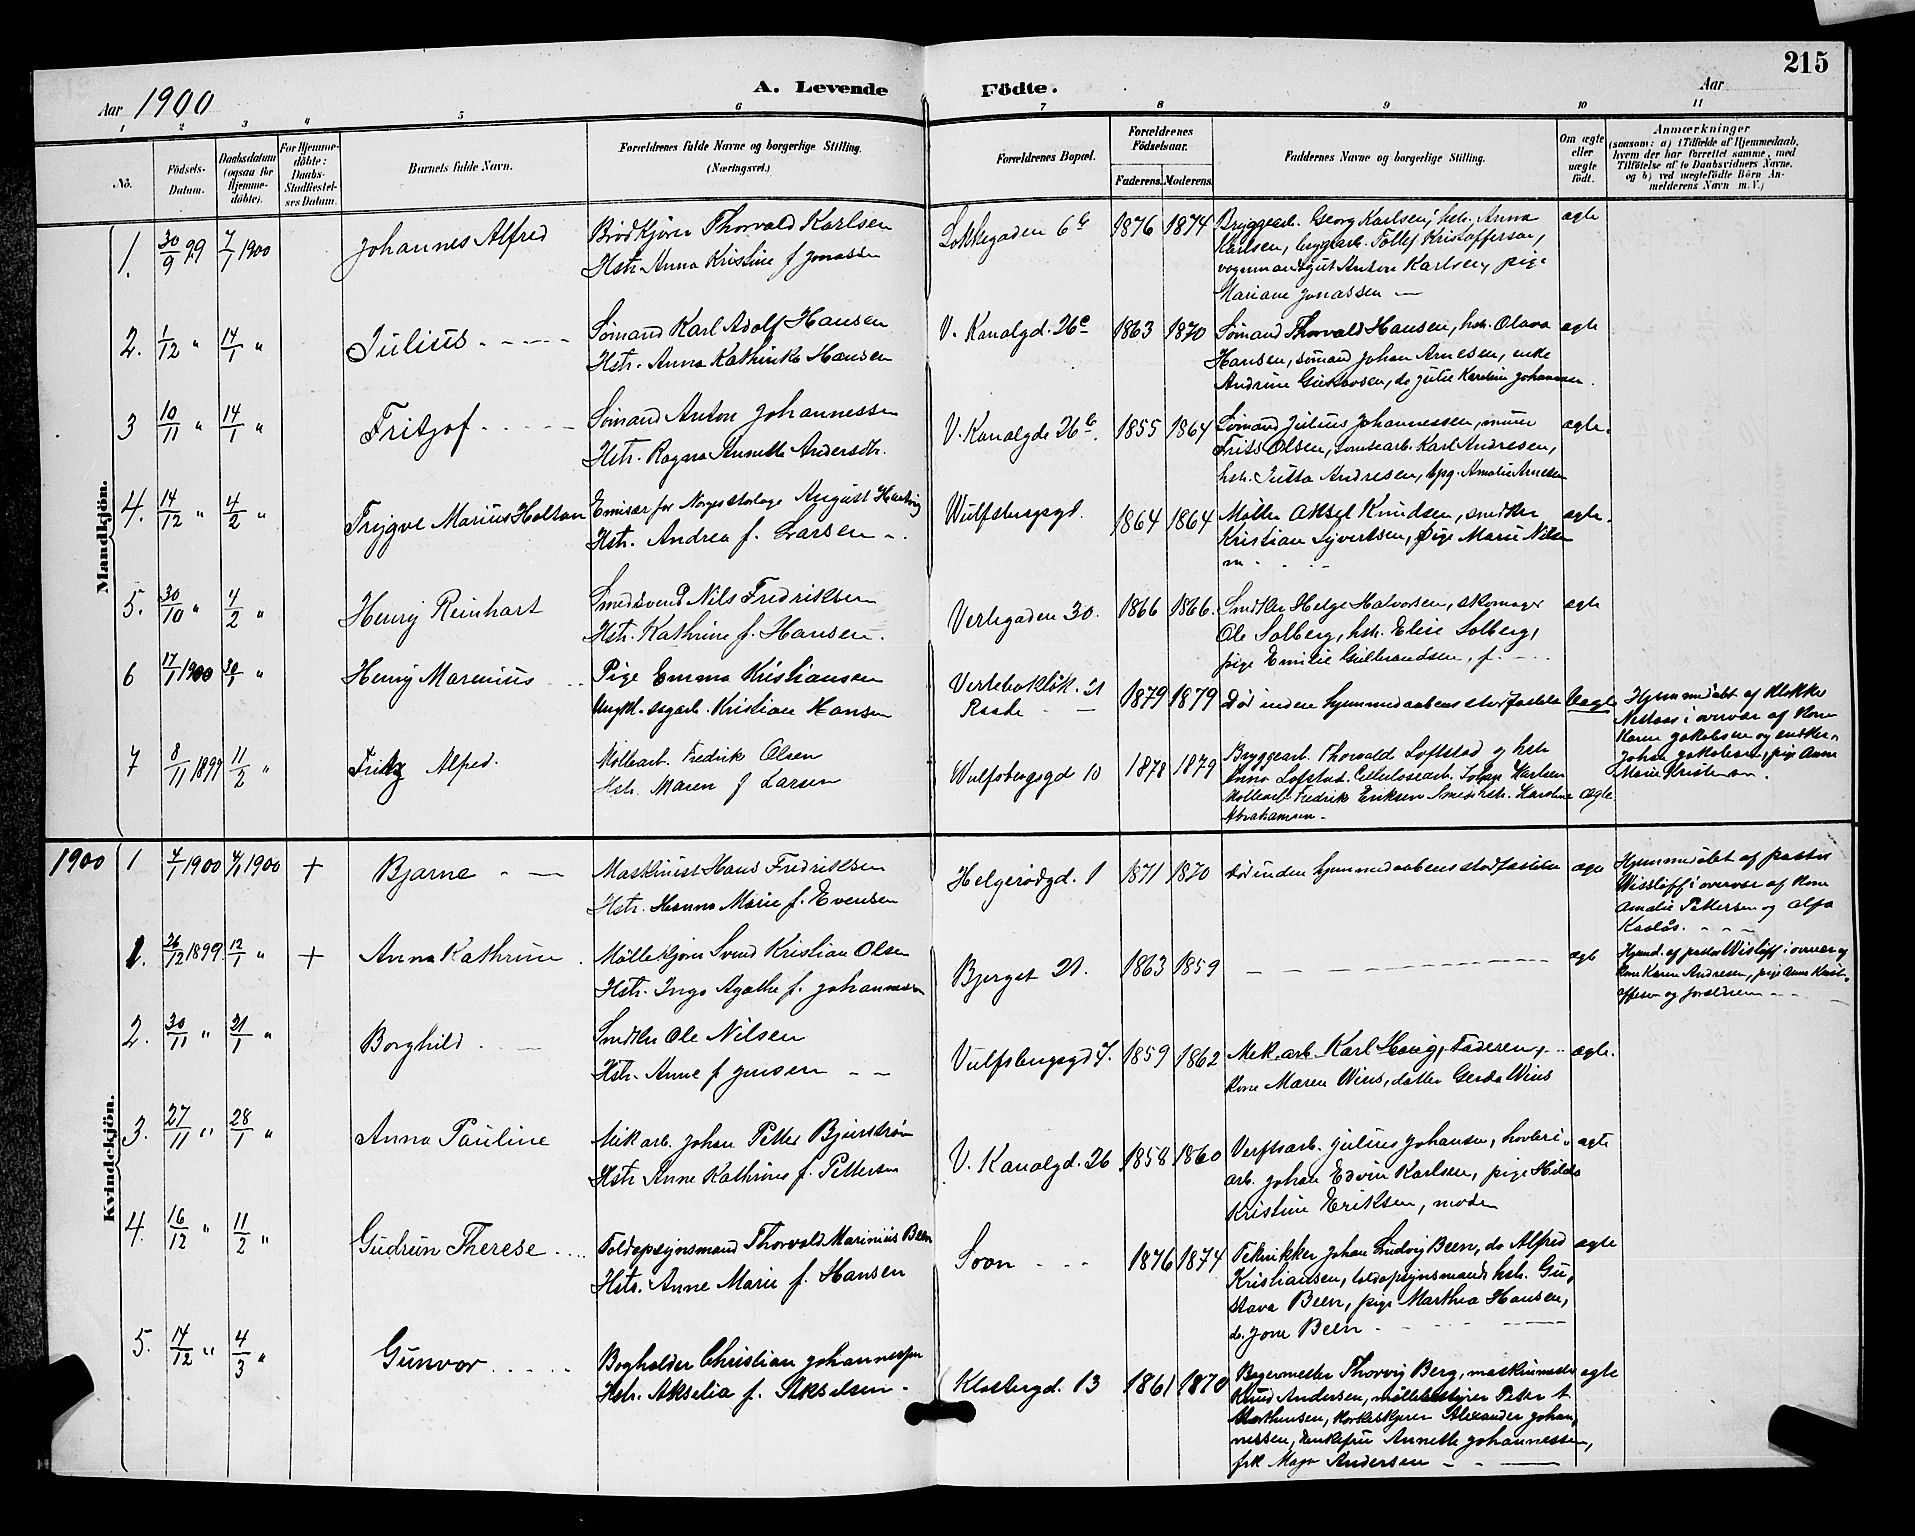 215
Aar 1900
A. Levende Födte.
Aar
1 2 3 4 5 6 7 8 9 10 11
No.
Födsels-Datum.
Daabsdatum (ogsaa for Hjemme-döbte).
For Hjemme-döbte: Daabs-Stadfæstel-ses Datum.
Barnets fulde Navn.
Forældrenes fulde Navne og borgerlige Stilling. (Næringsvei.)
Forældrenes Bopæl.
Forældrenes Födselsaar.
Faderens. Moderens.
Faddernes Navne og borgerlige Stilling.
Om ægte eller uægte födt.
Anmærkninger
(saasom: a) i Tilfælde af Hjemmedaab, hvem der har forrettet samme, med Tilföielse af to Daabsvidners Navne. og b) ved uægtefödte Börn Anmelderens Navn m. V.)
Mandkjön.
1. 30/9 99 7/1 1900 Johannes Alfred
Brödkjører Thorvald Karlsen
Hstr. Anna Kristine f. Jonassen
Løkkegaden 6 b 1876 1874
Bryggearb. Georg Karlsen, hstr. Anna
Karlsen, bryggearb. Tollef Kristoffersen,
vognmandsgut Anton Karlsen, pige
Mariane Jonassen —
ægte
2. 1/12 " 14/1 " Julius
Sømand Karl Adolf Hansen
Hstr. Anna Kathinka Hansen
V. Kanalgd. 26 c 1863 1870
Sømand Thorvald Hansen, hstr. Olava
Hansen, sømand Johan Arnesen, enke
Andrine Gustavsen, do Julie Karoline Johannsen.
ægte
3 10/11 " 14/1 " Fritzof
Sømand Anton Johannessen
Hstr. Ragna Annette Andersdtr.
V. Kanalgde 26 b. 1855 1864
Sømand Julius Johannessen, murer
Frits Olsen, tomtearb. Karl Andresen,
hstr. Jutta Andresen, Amalie Arnesen
ægte.
4. 14/12 " 4/2 " Trygve Marius Holtan
Emisær for Norges storloge August Hartvig
Hstr. Andrea f. Larsen
Wulfsbergsgd. 1864 1864
Møller Aksel Knudsen, snedker
Kristian Syvertsen, pige Marie Nilsen
ægte.
5. 30/10 " 4/2 " Henry Reinhart
Smedsvend Nils Fredriksen
Hstr. Kathrine f. Hansen.
Verlegaden 30. 1866 1866.
Snedker Helge Halvorsen, skomager
Ole Solberg, hstr. Elise Solberg,
pige Emilie Gulbrandsen, f.
ægte
6 17/1 1900 30/1 " Henry Marenius
Pige Emma Kristiansen
Ungkl. sagarb. Kristian Hansen
Verlebakløk. 21
Raade
1879 1879
Död inden hjemmedaabens stadfæstelse
Uægte
Hjemmedøbt af klokker
Nestaas i overvær af kone
Karen Jakobsen og
Johan Jakobsen, pige Anna
Marie Kristensen.
7 8/11 1899 11/2 " Fritz Alfred.
Møllearb. Fredrik Olsen
Hstr. Maren f. Larsen
Wulfsbergsgd 10 1878 1879
Bryggearb. Thorvald Loftstad og hstr.
Anna Lofstad. Cellulosearb. Johan Karlsen
Møllearb. Fredrik Eriksen Smeds hstr. Karoline
Abrahamsen.
Ægte.
1900 1 4/1 1900 4/1 1900 + Bjarne
Maskinist Hans Fredriksen
Hstr. Hanna Marie f. Evensen
Helgerødgd. 1 1871 1870
död inden hjemmedaabens stadfæstelse
ægte
Hjemmedøbt af pastor
Wisløff i overvær af kone
Amalie Pettersen og Olga
Kaslås.
Kvindekjön.
1. 26/12 1899 12/1 " + Anna Kathrine
Møllekjører Svend Kristian Olsen
Hstr. Inga Agathe f. Johannessen
Bjerget 21. 1863 1859
ægte
Hjemd. af pastor Wisløff i overvær af
kone Karen Andresen, pige Anna Krist-
offersen og forældrene
2. 30/11 " 21/1 " Borghild
Snedker Ole Nilsen
Hstr. Anne f. Jensen
Vulfsbergsgd 7. 1859 1862
Mek. arb. Karl Haug, Faderen,
kone Maren Wiis, datter Gerda Wiis
ægte.
3. 27/11 " 28/1 " Anna Pauline
Mek arb. Johan Petter Bjurstrøm
Hstr Anne Kathrine f. Pettersen
V. Kanalgd. 26 1858 1860
Verftsarb. Julius Johansen, høvleri-
arb. Johan Edvin Karlsen, pige Hilda
Kristine Eriksen, moder
ægte
4. 16/12 " 11/2 " Gudrun Therese
Toldopsynsmand Thorvald Marinius Been
Hstr. Anne Marie f. Hansen
Soon 1876 1874
Tekniker Johan Ludvig Been, do Alfred
Kristiansen, toldopsynsmands hstr. Gu-
stava Been, pige Marthea Hansen,
do. Jone Been
ægte
5. 14/12 " 4/3 " Gunvor
Bogholder Christian Johannessen
Hstr. Akselia f. Akselsen.
Klostergd. 13 1861 1870
Bagermester Thorvig Berg, maskinmester
Knud Andersen, møllebestyrer Petter A
Marthinsen, Alexander Johan-
nessen, Enkefru Annette Johannessen,
frk Maja Andersen
ægte